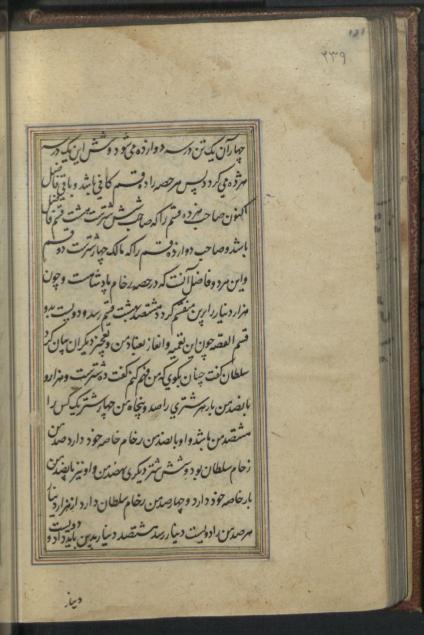 121
۲۳۹
چهار آن یک تن در سه دوازده می شود و شش این یک در سه
هژده می گردد پس هر حصه را دو قسم کافی باشد و باقی فاضل
اکنون صاحب هژده قسم را که صاحب شش شترست هشت قسم فاضل
باشد و صاحب دوازده قسم را که مالک چهار شترست دو قسم
و این هر دو فاضل آنست که در حصه رخام پادشاست و چون
هزار دینار را برین منقسم کرده هشتصد بهشت قسم رسد و دویست بدو
قسم القصه چون این تعمیه و الغاز بعناد من و تعجیز دیگران بیان کرد
سلطان گفت چنان بگوی که من فهم کنم گفت ده شترست و هزار و
پانصد من بار هر شتری را صد و پنجاه من چهار شتر یک کس را
ششصد من باشد و او پانصد من رخام خاصه خود دارد صد من
رخام سلطان بود و شش شتر دیگری نهصد من و او نیز پانصد من
بار خاصه خود دارد و چهار صد من رخام سلطان دارد از هزار دینار
هر صد من را دویست دینار رسد هشتصد دینار بدین باید داد و دویست
دینار